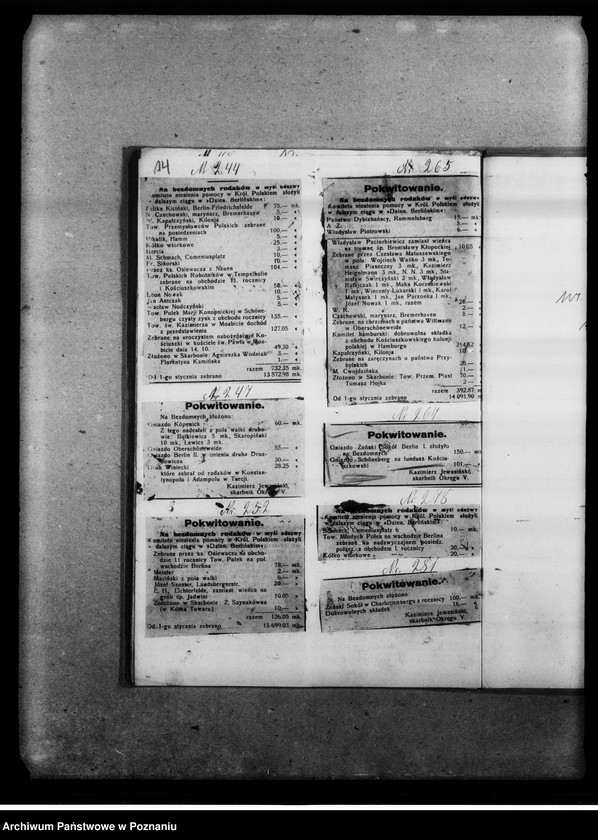 14
N 244
Na bezdomnych rodaków w myśl odezwy
Komitetu niesienia pomocy w Król. Polskiem złożyli
w dalszym ciągu w »Dzien. Berlińskim«:
Feliks Kiciński, Berlin-Friedrichsfelde 75.— mk.
N. Czechowski, marynarz, Bremerhaven 5.— «
W. Kapałczyński, Kilonja 10.— «
Tow. Przemysłowców Polskich zebrane
na posiedzeniach 100.— «
Mikulik, Hamm 5.— «
Kółko wtorkowe 25.— «
Hercia 3.— «
M. Sthmach, Comeniusplatz 10.— «
Fr. Sikorski 70.— «
Przez ks. Osiewacza z Nauen 104.— «
Tow. Polskich Robotników w Tempelhofie
zebrane na obchodzie 11. rocznicy
i Kościuszkowskim 50.— «
Leon Nowak 10.— «
Jan Antczak 5.— «
Wacław Nodzyński 5.— «
Tow. Polek Marji Konopnickiej w Schöne-
bergu czysty zysk z obchodu rocznicy 135.— «
Tow. św. Kazimierza w Moabicie dochód
z przedstawienia 127.05 «
Zebrane na uroczystem nabożeństwie Ko-
ściuszki w kościele św. Pawła w Moa-
bicie dnia 14. 10. 49.30 «
Złożono w Skarbonie: Agnieszka Woźniak 3.— «
Florentyna Kamińska 1.— «
razem 732.35 mk.
Od 1-go stycznia zebrano 13 572.98 mk.
N 247
Pokwitowanie.
Na Bezdomnych złożono:
Gniazdo Köpenick 60.— mk.
Z tego nadesłali z pola walki druho-
wie: Bątkiewicz 5 mk, Skaropiński
10 mk., Lewicz 3 mk.
Gniazdo Oberschöneweide 55.— «
Gniazdo Berlin II. w imieniu druha Droz-
dowicza 30.— «
Druh Winiecki 28.25 «
które zebrał od rodaków w Konstan-
tynopolu i Adampolu w Turcji.
Kazimierz Jewasiński,
skarbnik Okręgu V.
N. 252
Pokwitowanie.
Na bezdomnych rodaków w myśl odezwy
Komitetu niesienia pomocy w Król. Polskiem złożyli
w dalszym ciągu w »Dzien. Berlińskim«:
Zebrane przez ks. Osiewacza na obcho-
dzie 11 rocznicy Tow. Polek na pół.
wschodzie Berlina 78.— mk.
Meister 2.— mk.
Maciński z pola walki 6.— «
Józef Szuster, Landsbergerstr. 20.— «
E. H., Lichterfelde, zamiast wieńca na
grób śp. Jadwini 10.05 «
Złożono w Skarbonie: Z. Szynskówna
(w Kółku Towarz.) 10.— «
razem 126.05 mk.
Od 1-go stycznia zebrano 13 699.03 mk.
N. 265
Pokwitowanie.
Na bezdomnych rodaków w myśl odezwy
Komitetu niesienia pomocy w Król. Polskiem złożyli
w dalszym ciągu w »Dzien. Berlińskim«:
Państwo Dybizbańscy, Rummelsburg 15.— mk.
A. Z. 5.— «
Władysław Piotrowski 6.— «
Władysława Paciorkiewicz zamiast wieńca
na trumnę śp. Bronisławy Kłopockiej 10.05 «
Zebrane przez Czesława Matuszewskiego
w polu: Wojciech Waśko 3 mk., To-
masz Piaseczny 3 mk., Kazimierz
Heigelmann 3 mk., N. N. 3 mk., Sta-
nisław Świrczyński 2 mk., Władysław
Ratajczak 1 mk., Maks Korzeniewski
1 mk., Wincenty Łukarski 1 mk., Karol
Matysek 1 mk., Jan Parzonka 1 mk.,
Józef Nowak 1 mk., razem 20.— «
W. R. 2.— «
Czechowski, marynarz, Bremerhaven 8.— «
Zebrane na chrzcinach u państwa Wittmann
w Oberschöneweide 12.— «
Komitet hamburski: dobrowolna składka
z obchodu Kościuszkowskiego kolonji
polskiej w Hamburgu 214.82 «
Kapałczyński, Kilonja 10.— «
Zebrane na zaręczynach u państwa Przy-
bylskich 20.— «
M. Cwojdzińska 11.— «
Złożono w Skarbonie: Tow. Przem. Piast 70.— «
Tomasz Hojka 2.— «
razem 392.87 m
Od 1-go stycznia zebrano 14 091.90 m
N 269
Pokwitowanie.
Gniazdo Żeński Sokół Berlin I. złożyło
na Bezdomnych 150.— mk.
Gniazdo Schöneberg na fundusz Kościu-
szkowski 101.— «
Kazimierz Jewasiński,
skarbnik Okręgu V.
N. 278
Na bezdomnych rodaków w myśl odezwy
Komitetu niesienia pomocy w Król. Polskiem złożyli
w dalszym ciągu w »Dzien. Berlińskim«:
Comeniusplatz 6 10.— mk.
Tow. Młodych Polek na wschodzie Berlina
zebrane na nadzwyczajnem posiedz.
połącz. z obchodem I. rocznicy 30.— «
Kółko wtorkowe 20.— «
N. 281
Pokwitowanie.
Na Bezdomnych złożono
Żeński Sokół w Charlottenburgu z rocznicy 100.— mk.
Dobrowolnych składek 16.— «
Kazimierz Jewasiński,
skarbnik Okręgu V.
Archiwum Państwowe w Poznaniu